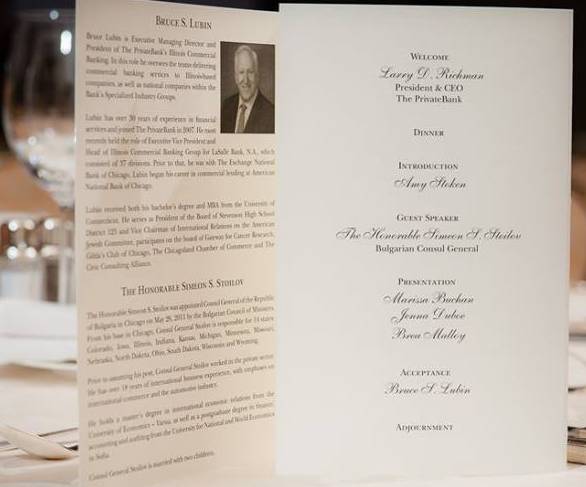 BRUCE S. LUBIN
Bruce Lubin is Executive Managing Director and
President of The PrivateBank's Illinois Commercial
Banking. In this role he oversees the teams delivering
commercial banking services to Illinois-based
companies, as well as national companies within the
Bank's Specialized Industry Groups.
Lubin has over 30 years of experience in financial
services and joined The PrivateBank in 2007. He most
recently held the role of Executive Vice President and
Head of Illinois Commercial Banking Group for LaSalle Bank, N.A., which
consisted of 37 divisions. Prior to that, he was with The Exchange National
Bank of Chicago. Lubin began his career in commercial lending at American
National Bank of Chicago.
Lubin received both his bachelor's degree and MBA from the University of
Connecticut. He serves as President of the Board of Stevenson High School
District 125 and Vice Chairman of International Relations on the American
Jewish Committee, participates on the board of Gateway for Cancer Research,
Gilda's Club of Chicago, The Chicagoland Chamber of Commerce and The
Civic Consulting Alliance.
THE HONORABLE SIMEON S. STOILOV
The Honorable Simeon S. Stoilov was appointed Consul General of the Republic
of Bulgaria in Chicago on May 26, 2011 by the Bulgarian Council of Ministers.
From his base in Chicago, Consul General Stoilov is responsible for 14 states:
Colorado, Iowa, Illinois, Indiana, Kansas, Michigan, Minnesota, Missouri,
Nebraska, North Dakota, Ohio, South Dakota, Wisconsin and Wyoming.
Prior to assuming his post, Consul General Stoilov worked in the private sector.
He has over 18 years of international business experience, with emphases on
international commerce and the automotive industry.
He holds a master's degree in international economic relations from the
University of Economics – Varna, as well as a postgraduate degree in finance,
accounting and auditing from the University for National and World Economics
in Sofia.
Consul General Stoilov is married with two children.
WELCOME
Larry D. Richman
President & CEO
The PrivateBank
DINNER
INTRODUCTION
Amy Stoken
GUEST SPEAKER
The Honorable Simeon S. Stoilov
Bulgarian Consul General
PRESENTATION
Marissa Buchan
Jenna Duboe
Brea Malloy
ACCEPTANCE
Bruce S. Lubin
ADJOURNMENT